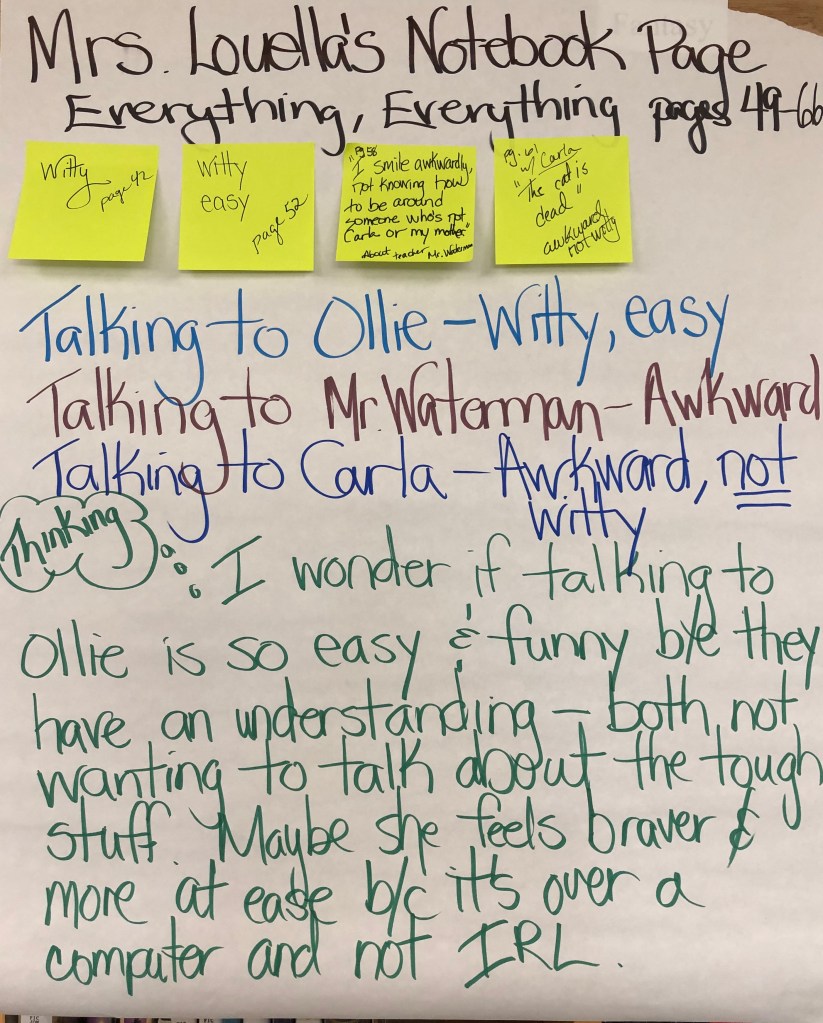 Mrs. Louella's Notebook Page
Everything, Everything pages 49-66
Witty
page 42
witty
easy
page 52
Pg 58
"I smile awkwardly,
not knowing how
to be around
someone who's not
Carla or my mother"
About teacher Mr. Waterman
Pg. 61
w/ Carla
"The cat is
dead"
awkward
not witty
Talking to Ollie - Witty, easy
Talking to Mr. Waterman - Awkward
Talking to Carla - Awkward, not
witty
Thinking
I wonder if talking to
Ollie is so easy & funny b/c they
have an understanding - both not
wanting to talk about the tough
stuff. Maybe she feels braver &
more at ease b/c it's over a
computer and not IRL.